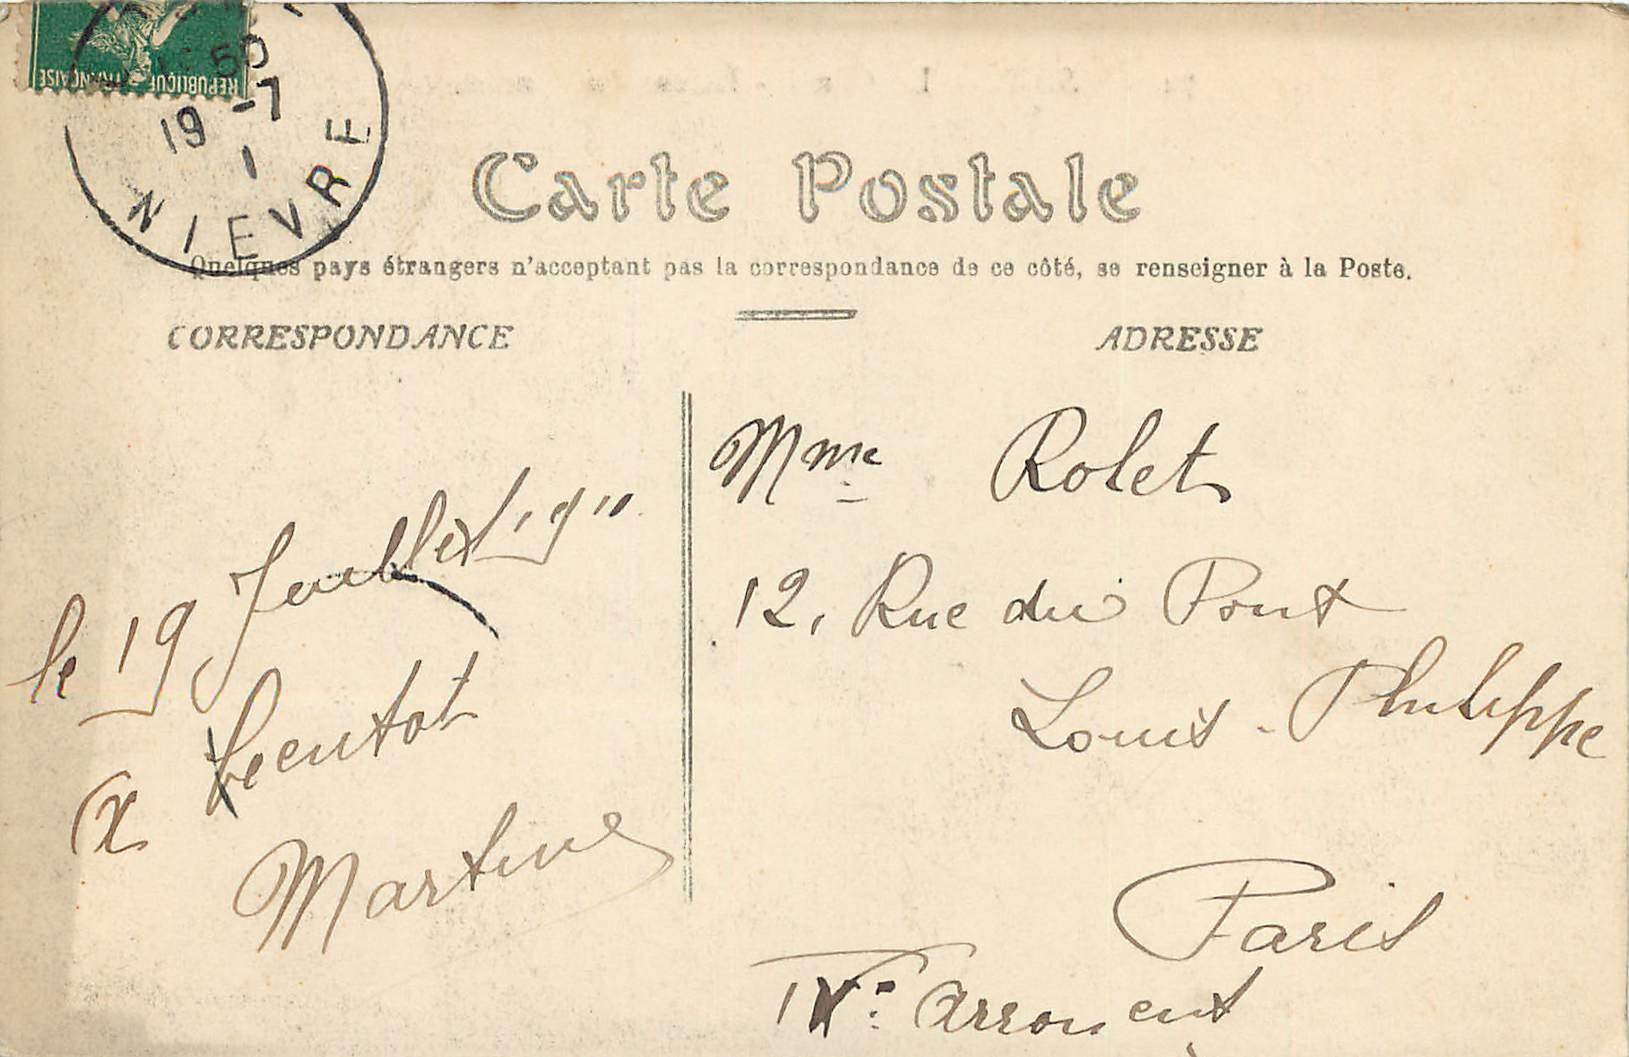 REPUBLIQUE FRANÇAISE
50
19 -7
1
NIEVRE
Carte Postale
Quelques pays étrangers n'acceptant pas la correspondance de ce côté, se renseigner à la Poste.
CORRESPONDANCE
le 19 Juillet 1911
a
Martine
ADRESSE
Mme Rolet
12, Rue du Pont
Louis-Philippe
Paris
IVe arronent